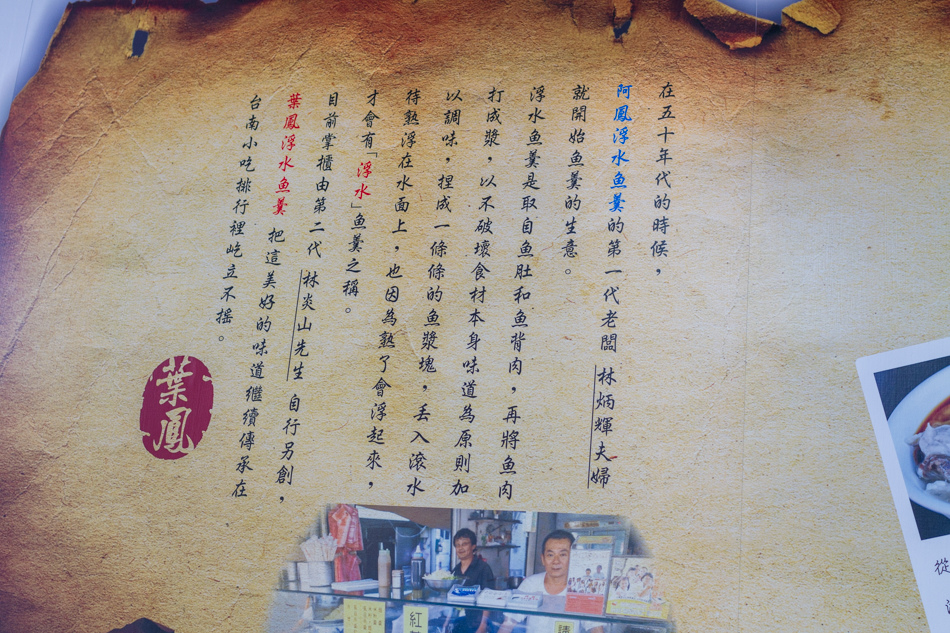 在五十年代的時候，
阿鳳浮水魚羹的第一代老闆 林炳輝夫婦
就開始魚羹的生意。
浮水魚羹是取自魚肚和魚背肉，再將魚肉
打成漿，以不破壞食材本身味道為原則加
以調味，捏成一條條的魚漿塊，丟入滾水
待熟浮在水面上，也因為熟了會浮起來，
才會有「浮水」魚羹之稱。
目前掌櫃由第二代 林炎山先生 自行另創，
葉鳳浮水魚羹 把這美好的味道繼續傳承在
台南小吃排行裡屹立不搖。
葉鳳
紅
從